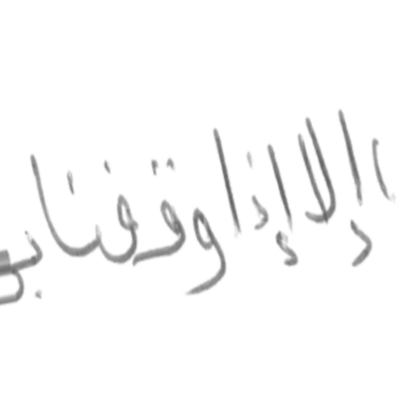 إلا إذا وقفنا